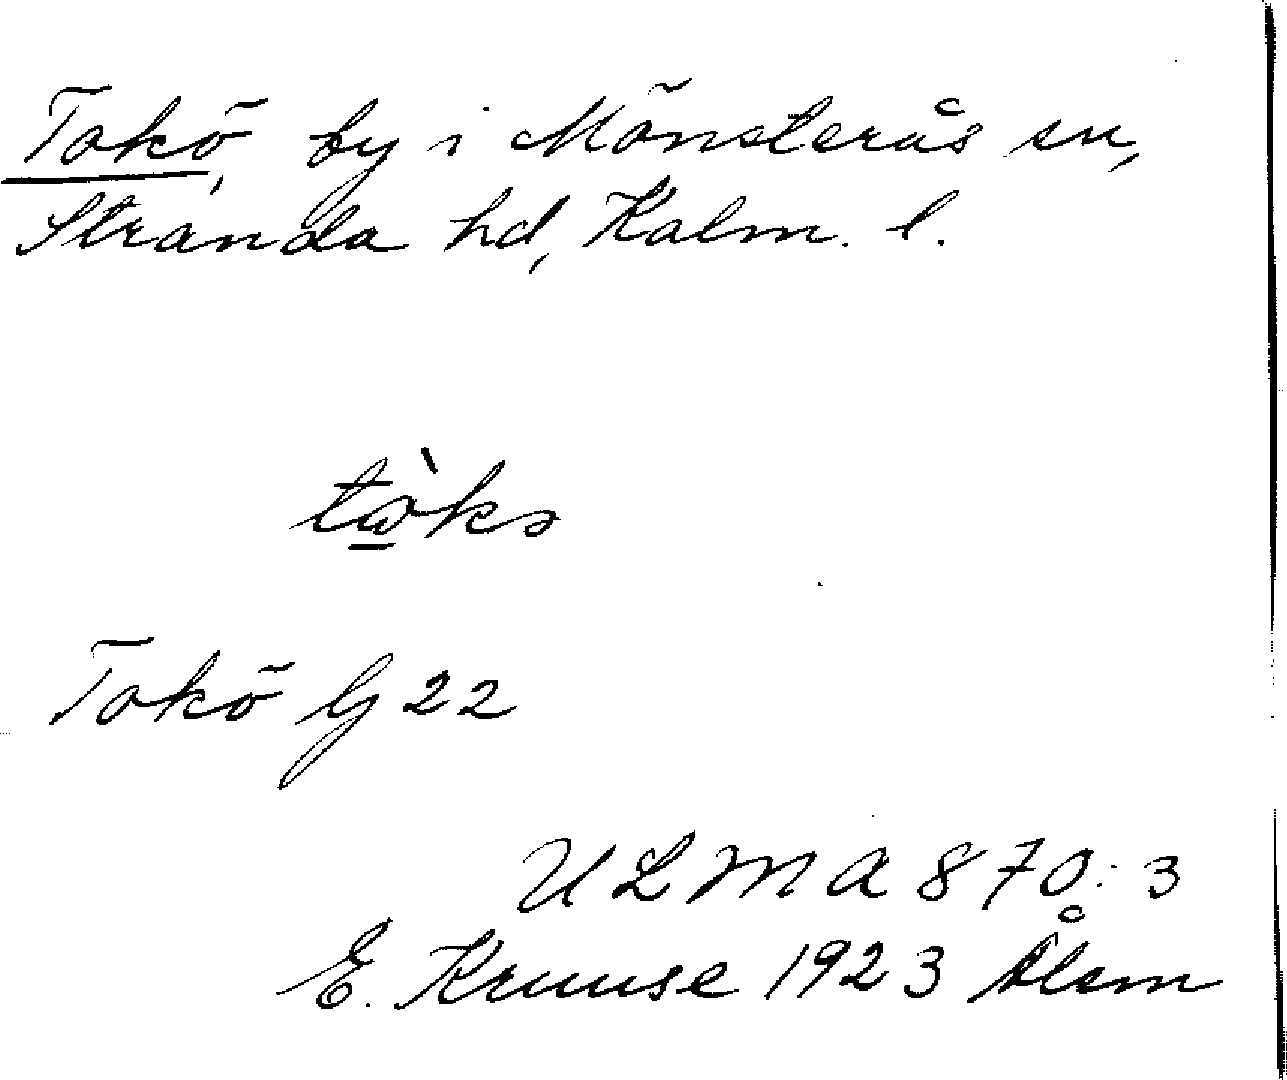 Tokö, by i Mönsterås sn,
Stranda hd, Kalm. l.
Tokö Gj 22
ULMA 870:3
E. Kruuse 1923 Ålem